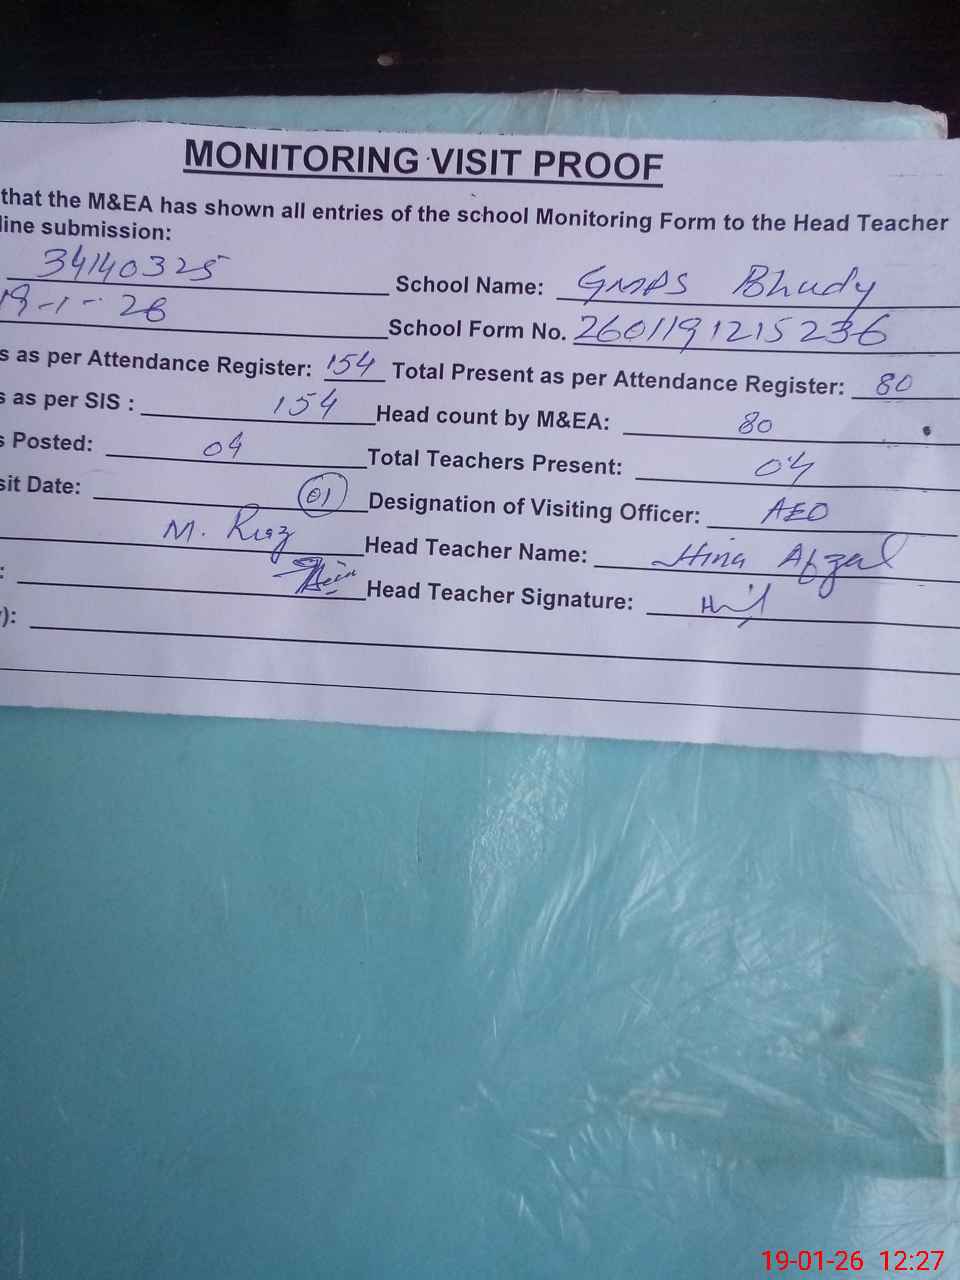 MONITORING VISIT PROOF
that the M&EA has shown all entries of the school Monitoring Form to the Head Teacher
line submission:
34140325 School Name: GMPS Bhudy
19-1-26 School Form No. 2601191215236
s as per Attendance Register: 154 Total Present as per Attendance Register: 80
s as per SIS : 154 Head count by M&EA: 80
s Posted: 04 Total Teachers Present: 04
sit Date: 01 Designation of Visiting Officer: AEO
M. Riaz Head Teacher Name: Hina Afzal
: Head Teacher Signature:
):
19-01-26 12:27